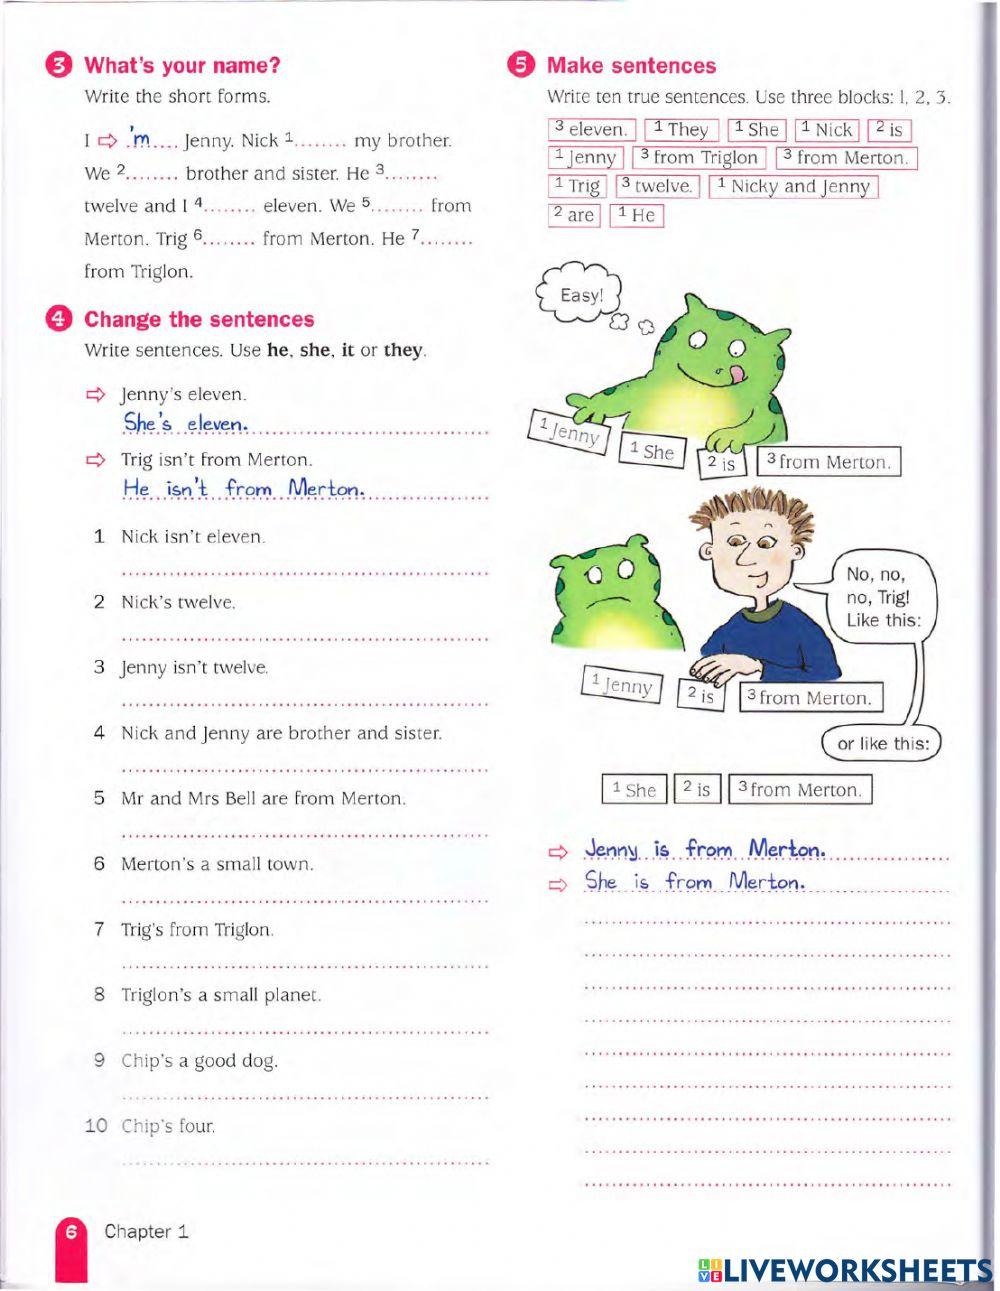 3 What's your name?
Write the short forms.
I ⇨ .'m.... Jenny. Nick 1........ my brother.
We 2........ brother and sister. He 3........
twelve and I 4........ eleven. We 5........ from
Merton. Trig 6........ from Merton. He 7........
from Triglon.
4 Change the sentences
Write sentences. Use he, she, it or they.
⇨ Jenny's eleven.
She's eleven.
⇨ Trig isn't from Merton.
He isn't from Merton.
1 Nick isn't eleven.
2 Nick's twelve.
3 Jenny isn't twelve.
4 Nick and Jenny are brother and sister.
5 Mr and Mrs Bell are from Merton.
6 Merton's a small town.
7 Trig's from Triglon.
8 Triglon's a small planet.
9 Chip's a good dog.
10 Chip's four.
5 Make sentences
Write ten true sentences. Use three blocks: 1, 2, 3.
3 eleven. 1 They 1 She 1 Nick 2 is
1 Jenny 3 from Triglon 3 from Merton.
1 Trig 3 twelve. 1 Nicky and Jenny
2 are 1 He
Easy!
1 Jenny 1 She 2 is 3 from Merton.
No, no,
no, Trig!
Like this:
1 Jenny 2 is 3 from Merton.
or like this:
1 She 2 is 3 from Merton.
⇨ Jenny is from Merton.
⇨ She is from Merton.
6 Chapter 1
LIVE LIVEWORKSHEETS